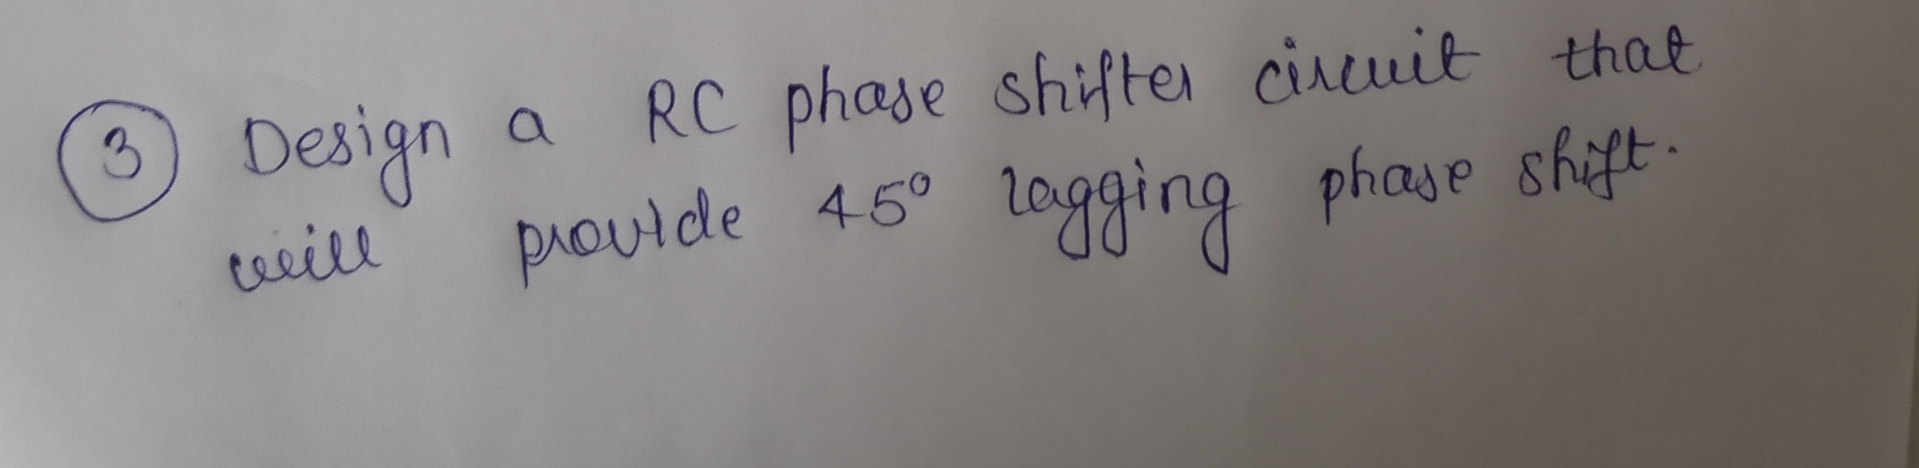 ③ Design a RC phase shifter circuit that
will provide 45° lagging phase shift.